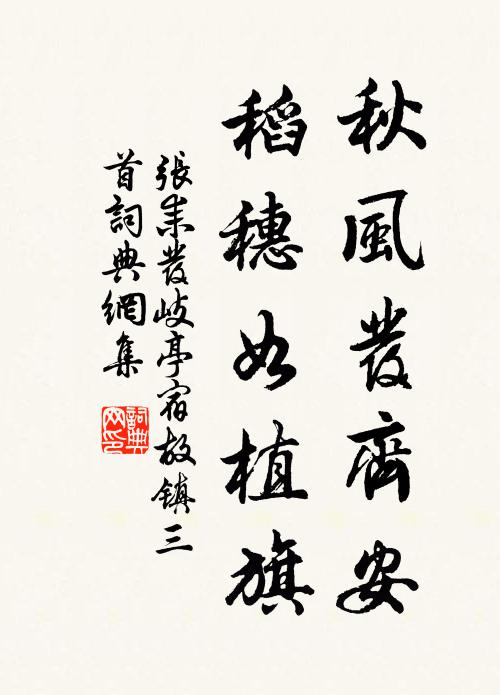 秋風發齊安
稻穗如植旗
張耒發岐亭宿故鎮三
首詞典網集
詞典
网印